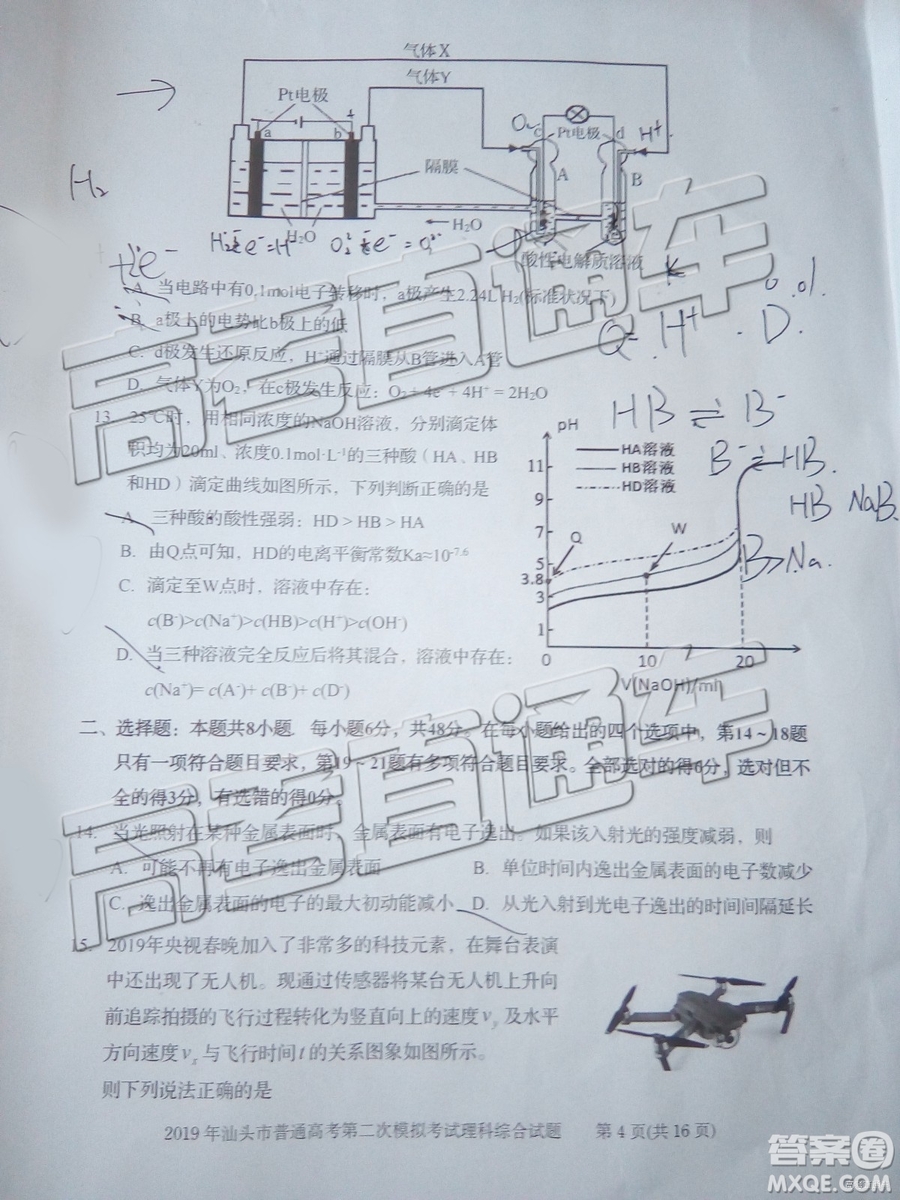 气体X
气体Y
Pt电极
a
b
O₂
c
Pt电极
d
H⁺
隔膜
A
B
H₂
H₂O
H₂O
酸性电解质溶液
A. 当电路中有0.1mol电子转移时，a极产生2.24L H₂(标准状况下)
B. a极上的电势比b极上的低
C. d极发生还原反应，H⁺通过隔膜从B管进入A管
D. 气体Y为O₂，在c极发生反应：O₂ + 4e⁻ + 4H⁺ = 2H₂O
13. 25℃时，用相同浓度的NaOH溶液，分别滴定体
积均为20ml、浓度0.1mol·L⁻¹的三种酸（HA、HB
和HD）滴定曲线如图所示，下列判断正确的是
A. 三种酸的酸性强弱：HD > HB > HA
B. 由Q点可知，HD的电离平衡常数Ka≈10⁻⁷·⁶
C. 滴定至W点时，溶液中存在：
c(B⁻)>c(Na⁺)>c(HB)>c(H⁺)>c(OH⁻)
D. 当三种溶液完全反应后将其混合，溶液中存在：
c(Na⁺)= c(A⁻)+ c(B⁻)+ c(D⁻)
HB ⇌ B⁻
B⁻ ⇌ HB
HB NaB
B>Na
pH
HA溶液
HB溶液
HD溶液
11
9
7
5
3.8
3
1
Q
W
0
10
20
V(NaOH)/ml
二、选择题：本题共8小题. 每小题6分，共48分。在每小题给出的四个选项中，第14～18题
只有一项符合题目要求，第19～21题有多项符合题目要求。全部选对的得6分，选对但不
全的得3分，有选错的得0分。
14. 当光照射在某种金属表面时，金属表面有电子逸出。如果该入射光的强度减弱，则
A. 可能不再有电子逸出金属表面 B. 单位时间内逸出金属表面的电子数减少
C. 逸出金属表面的电子的最大初动能减小 D. 从光入射到光电子逸出的时间间隔延长
15. 2019年央视春晚加入了非常多的科技元素，在舞台表演
中还出现了无人机。现通过传感器将某台无人机上升向
前追踪拍摄的飞行过程转化为竖直向上的速度vy及水平
方向速度vx与飞行时间t的关系图象如图所示。
则下列说法正确的是
2019年汕头市普通高考第二次模拟考试理科综合试题 第4页(共16页)
高考直通车
高考直通车
答案圈
MXQE.COM